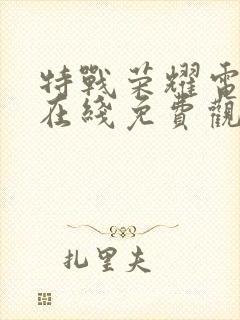 特戰荣耀電
在綫免費觀
扎里夫